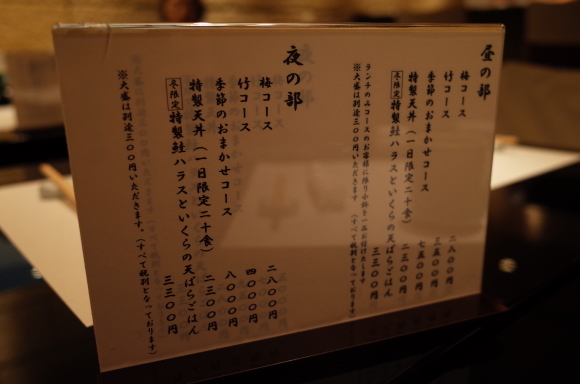 昼の部
梅コース 二八〇〇円
竹コース 三五〇〇円
季節のおまかせコース 七五〇〇円
特製天丼（一日限定二十食） 二三〇〇円
冬限定 特製鮭ハラスといくらの天ばらごはん 三三〇〇円
ランチのみコースのお客様に限り小鉢を一品お付けします
※大盛は別途三〇〇円いただきます（すべて税別となっております）
夜の部
梅コース 二八〇〇円
竹コース 四〇〇〇円
季節のおまかせコース 八〇〇〇円
特製天丼（一日限定二十食） 二三〇〇円
冬限定 特製鮭ハラスといくらの天ばらごはん 三三〇〇円
※大盛は別途三〇〇円いただきます。（すべて税別となっております）